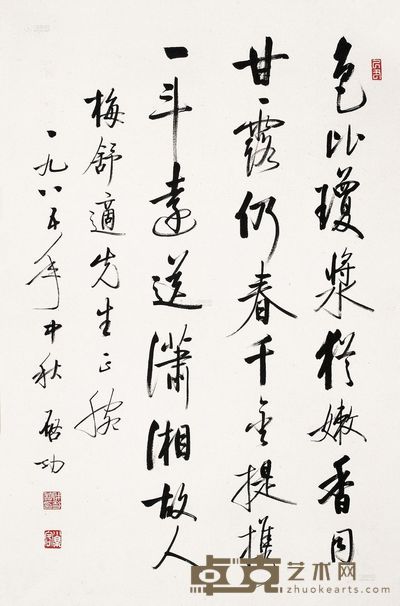 色比瓊漿猶嫩香同
甘露仍春千金提攜
一斗遠送瀟湘故人
梅舒適先生正腕
一九八五年中秋 啓功
卓克艺术网
zhuokearts.com